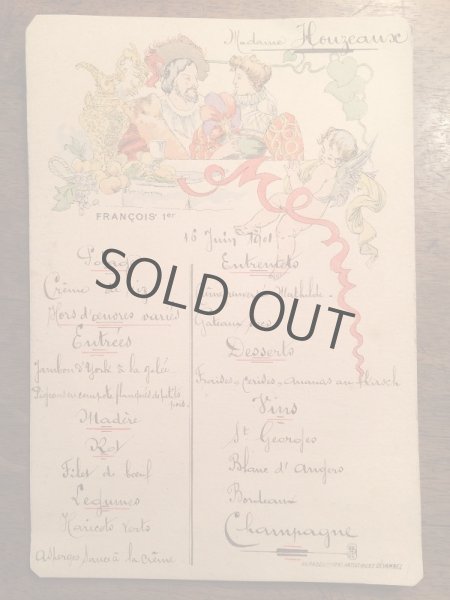 Madame Houzeaux
Menu
FRANÇOIS 1er
16 Juin 1901
Potage
Crème de riz
Hors d'œuvres variés
Entrées
Jambon d'York à la gelée
Pigeons en compote flanqués de petits
pois
Madère
Rot
Filet de bœuf
Légumes
Haricots verts
Asperges Sauce à la crème
Entremets
Mathilde
Gateaux
Desserts
Fraises - Cerises - Ananas au Kirsch
Vins
St Georges
Blanc d'Angers
Bordeaux
Champagne
SOLD OUT